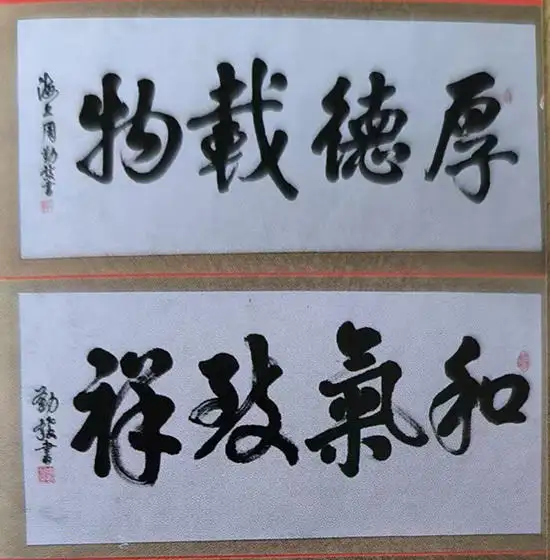 厚德載物
海上周勤發書
和氣致祥
勤發書